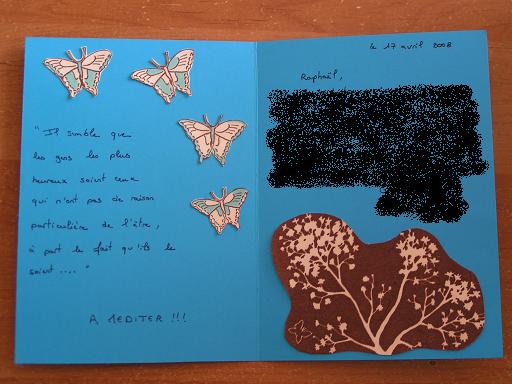 " Il semble que
les gens les plus
heureux soient ceux
qui n'ont pas de raison
particulière de l'être,
à part le fait qu'ils le
soient .... "
A MEDITER !!!
le 17 avril 2008
Raphaël,